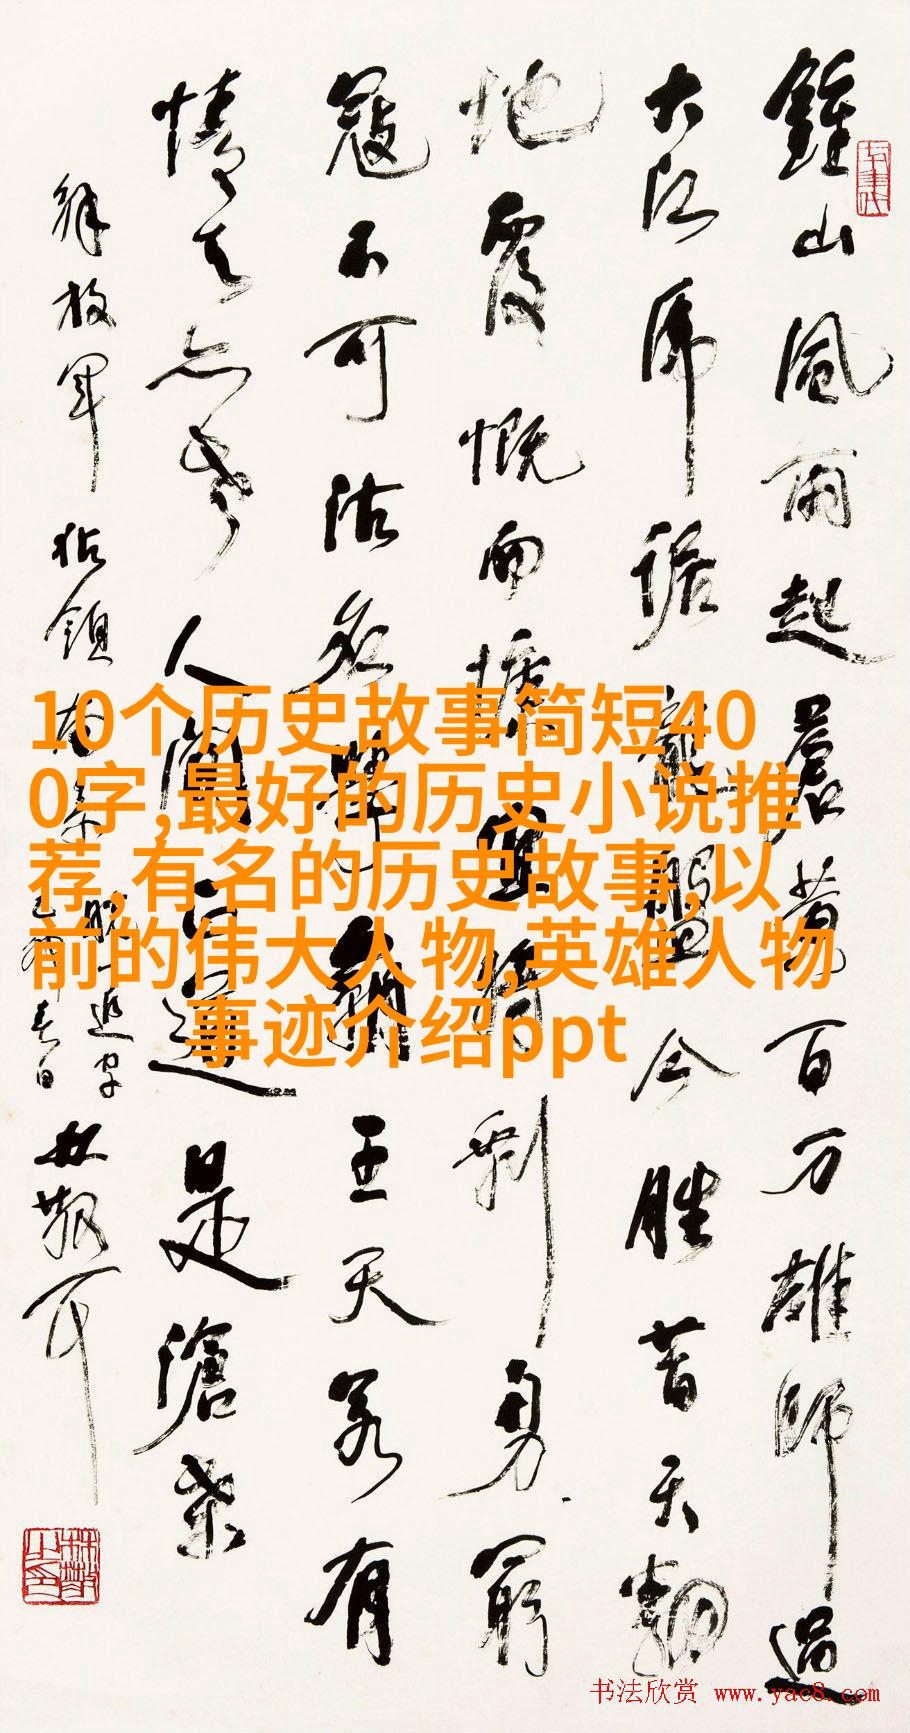 鍾山風雨起蒼黄百万雄师過
大江虎踞龍盤今胜昔天翻
地覆慨而慷宜将剩勇窮
寇不可沽名學霸王天若有
情天亦老人间正道是滄桑
解放军佔领南京
脱一追字
春日
林散耳
10个历史故事简短40
0字,最好的历史小说推
荐,有名的历史故事,以
前的伟大人物,英雄人物
事迹介绍ppt
书法欣赏 www.yac8.com